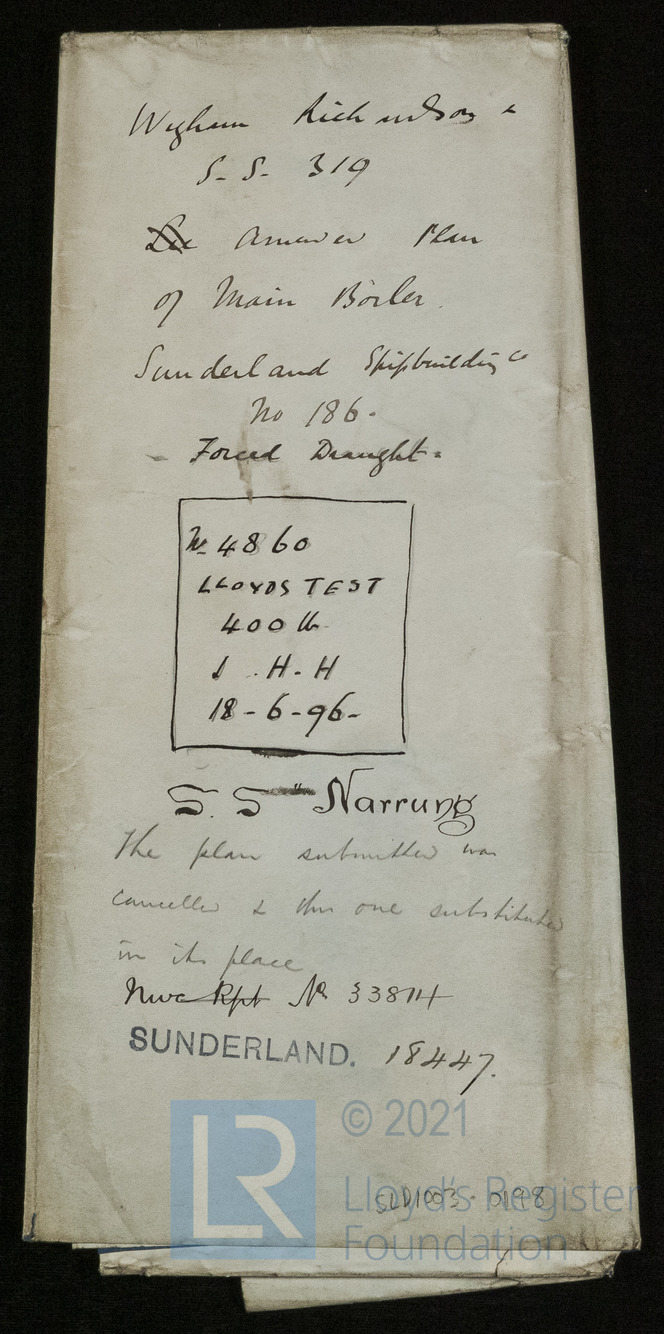 Wigham Richardson &
S.S. 319
Amended Plan
of Main Boiler.
Sunderland Shipbuilding Co
No 186.
Forced Draught.
No 4860
LLOYDS TEST
400 lb
J.H.H
18-6-96-
S.S "Narrung
The plan submitted was
cancelled & this one substituted
in its place
Nwc Rpt No 33814
SUNDERLAND. 18447.
LR
© 2021
Lloyd's Register
Foundation
SLD1003-0198